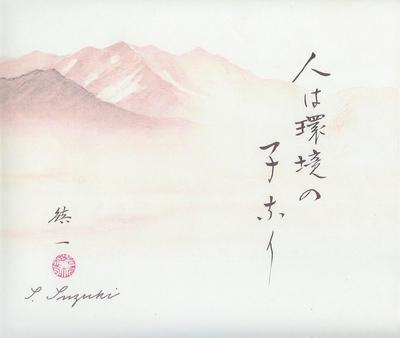 人は環境の
子なり
鎮一
S. Suzuki